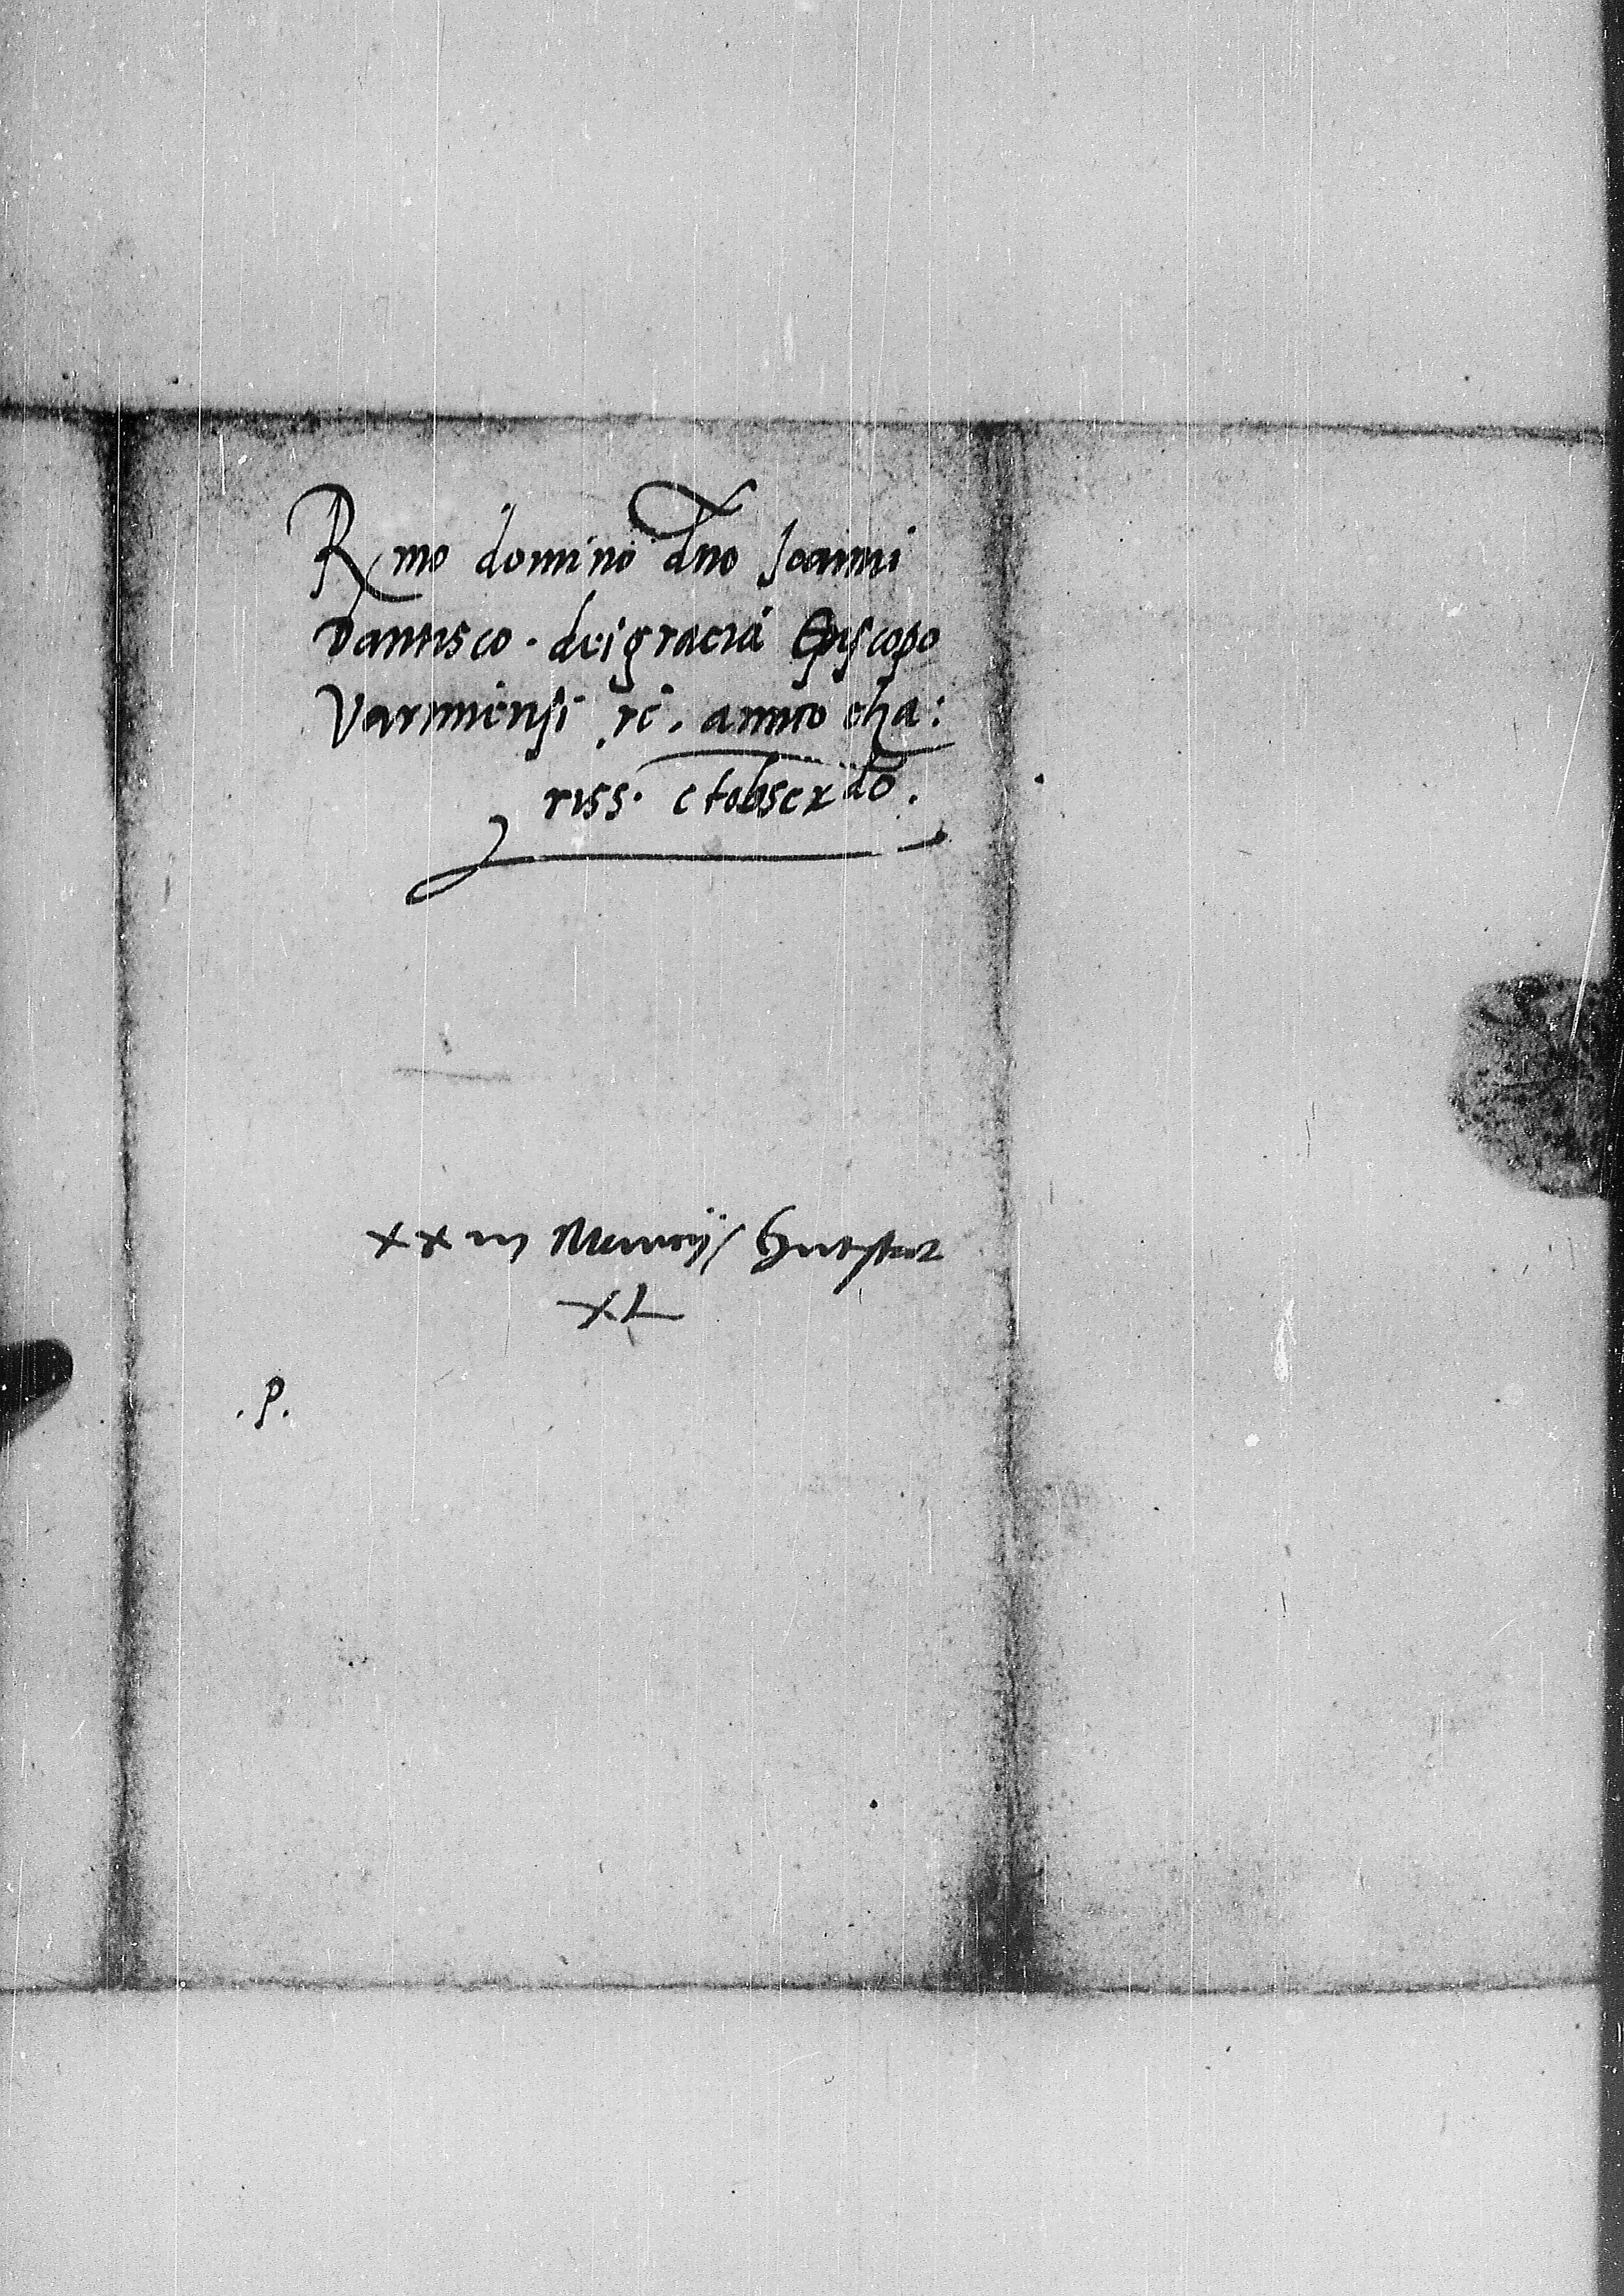 Rmo domino dno Ioanni
Dantisco . dei gracia Episcopo
Varmiensi rc. amico cha:
riss. et obserdo.
xxiij Marcij
XL
.P.